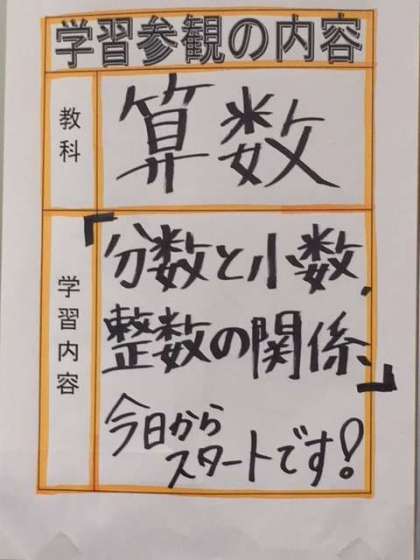 学習参観の内容
教科
算数
学習内容
「分数と小数、
整数の関係」
今日から
スタートです!